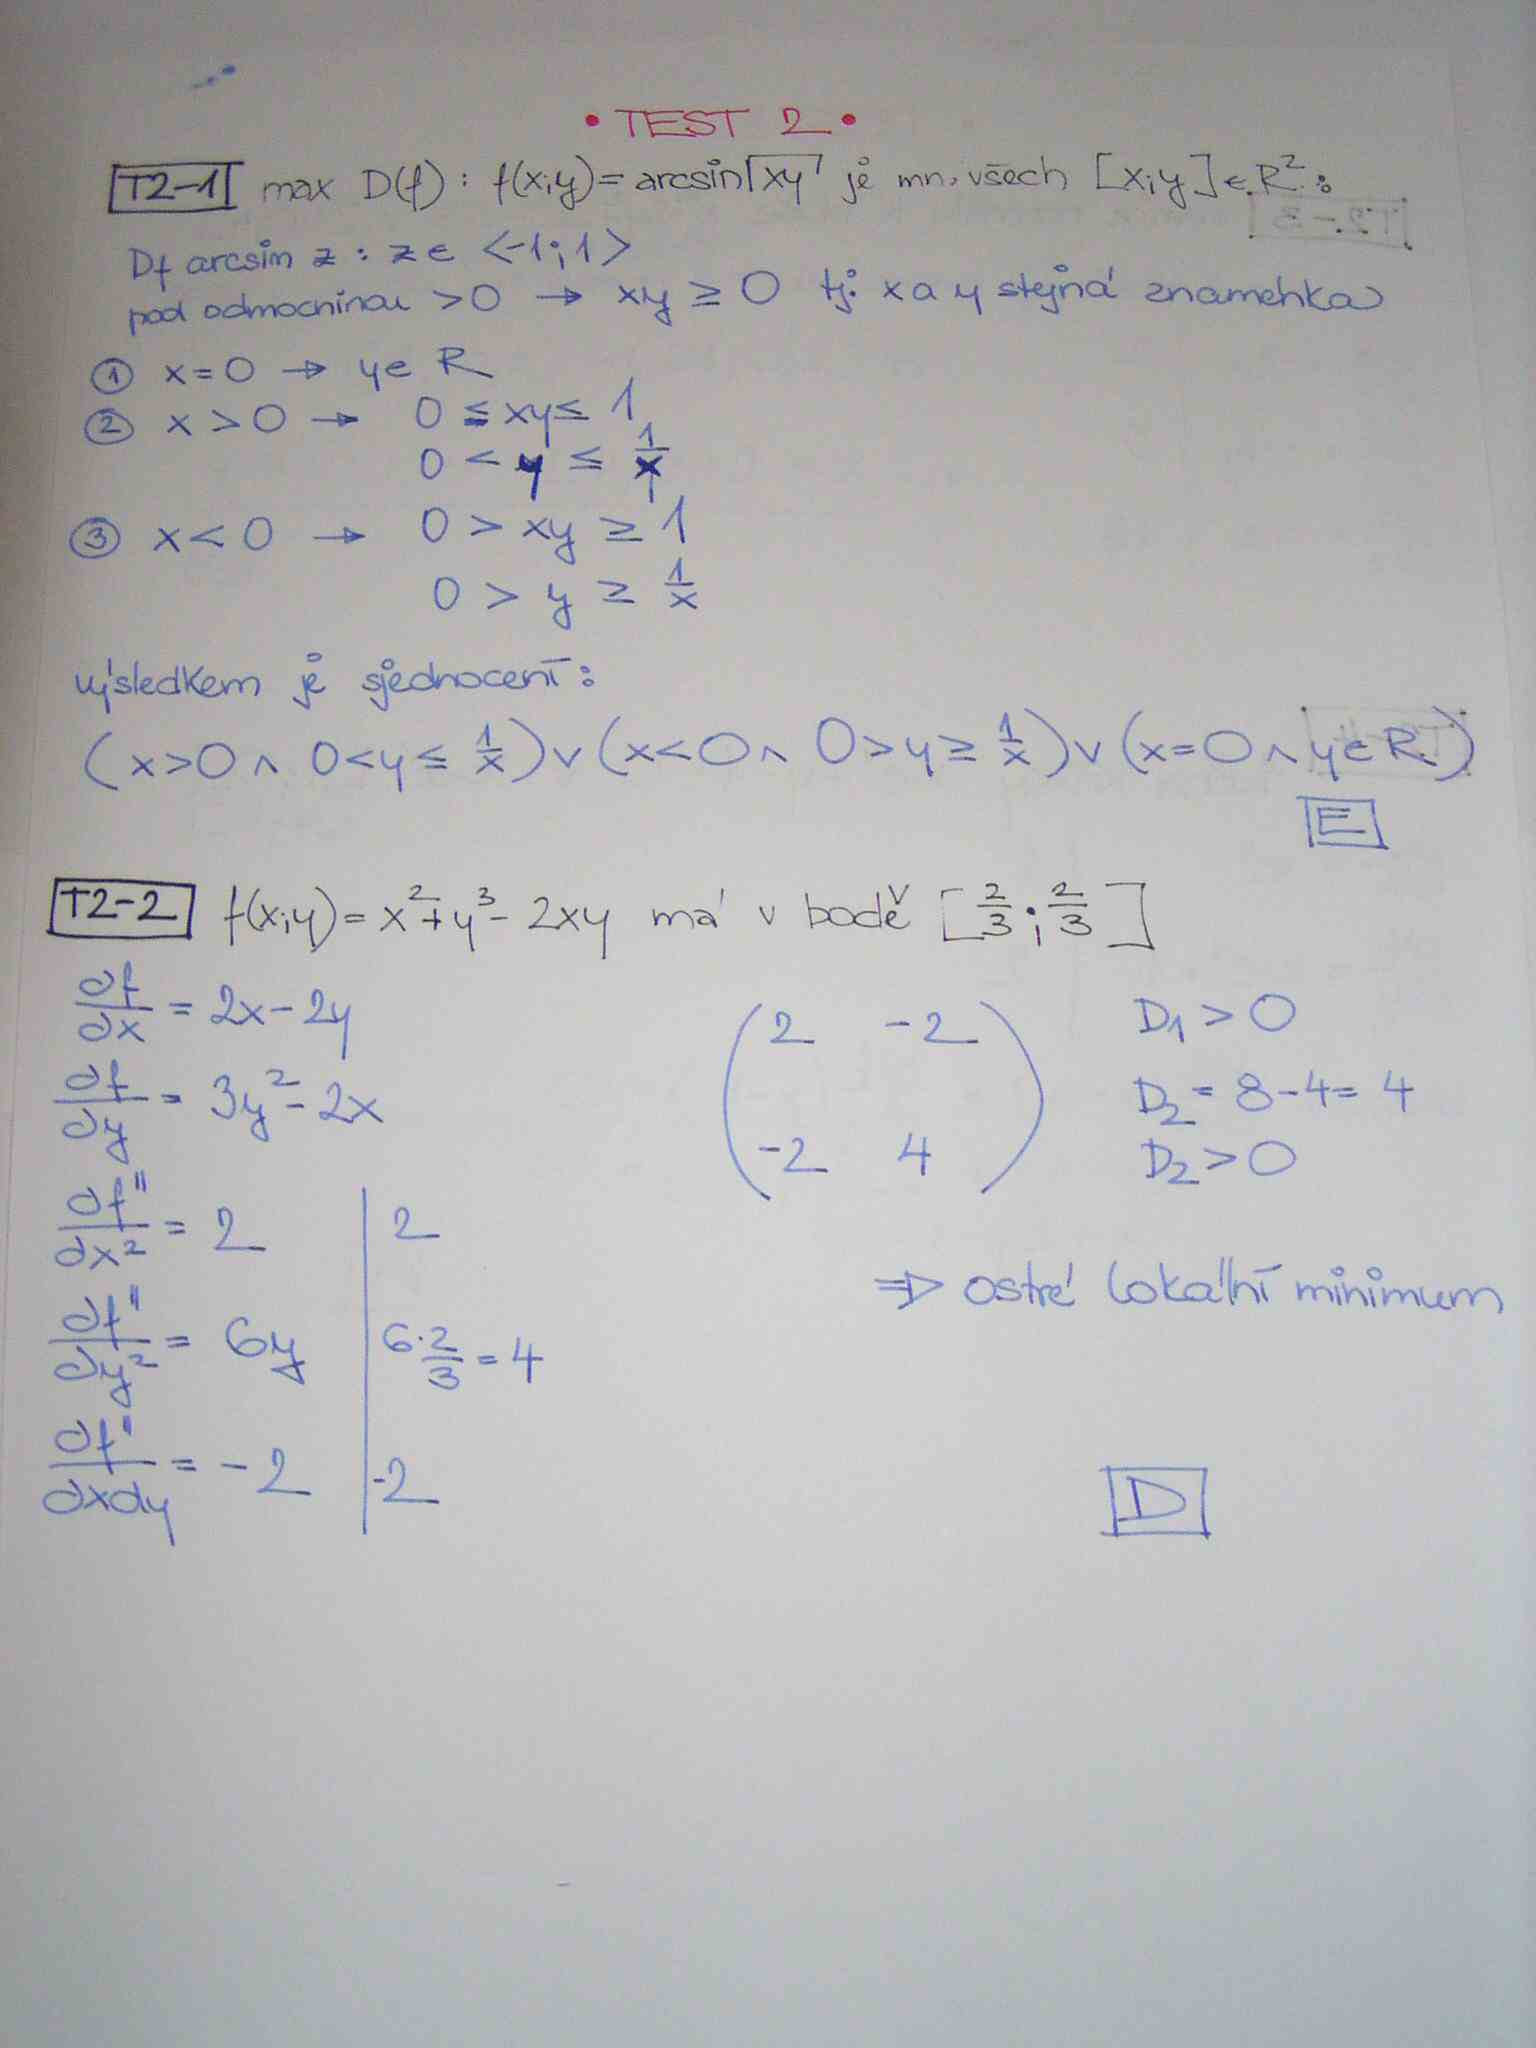 • TEST 2 •
T2-1 max D(f) : f(x;y) = arcsin√xy je mn. všech [x;y] ∈ R²:
Df arcsin z : z ∈ <-1;1>
pod odmocninou >0 → xy ≥ 0 tj. x a y stejná znamenka
① x=0 → y∈ R
② x>0 → 0 ≤ xy ≤ 1
0 < y ≤ 1/x
③ x<0 → 0 > xy ≥ 1
0 > y ≥ 1/x
výsledkem je sjednocení:
(x>0 ∧ 0<y≤ 1/x) ∨ (x<0 ∧ 0>y≥ 1/x) ∨ (x=0 ∧ y∈R)
E
T2-2 f(x;y) = x²+y³- 2xy má v bodě [2/3;2/3]
df/dx = 2x-2y
df/dy = 3y²-2x
df''/dx² = 2 | 2
df''/dy² = 6y | 6·2/3 = 4
df''/dxdy = -2 | -2
(2 -2
-2 4)
D₁ > 0
D₂ = 8-4= 4
D₂ > 0
⇒ ostré lokální minimum
D